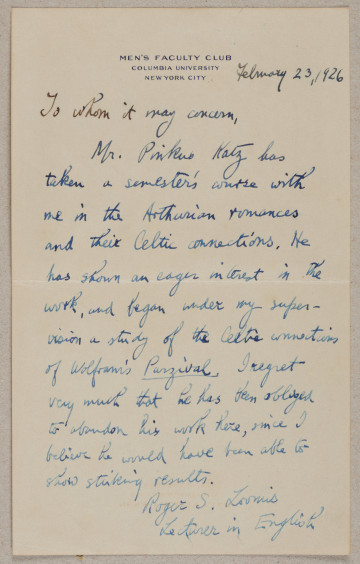 MEN'S FACULTY CLUB
COLUMBIA UNIVERSITY
NEW YORK CITY
February 23, 1926
To whom it may concern,
Mr. Pinkus Katz has
taken a semester's course with
me in the Arthurian romances
and their Celtic connections. He
has shown an eager interest in the
work, and began under my super-
vision a study of the Celtic connections
of Wolfram's Parzival. I regret
very much that he has been obliged
to abandon his work here, since I
believe he would have been able to
show striking results.
Roger S. Loomis
Lecturer in English